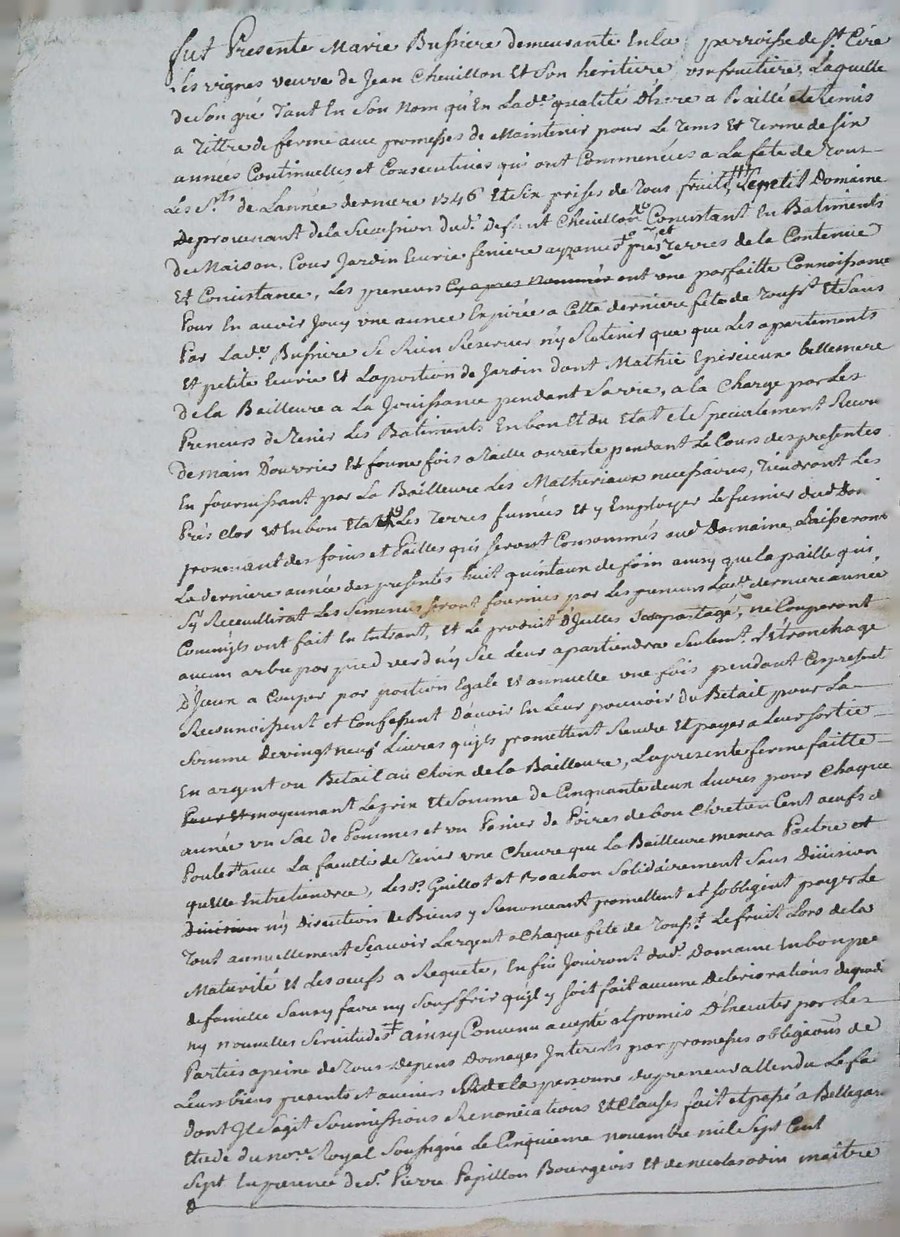 fut Presente Marie Bussiere demeurante En la parroisse de St. Cire
Les vignes veuve de Jean Cheuillon Et Son heritiere usufruitiere, Laquelle
de Son gré Tant En Son Nom qu'En Lade. qualité a Baillé et Remis
a Tittre de ferme avec promesses de Maintenir pour Le Tems Et Terme de Six
années Continuelles et Consecutives qui ont Commencées a La fete de Tous
Les Sts. de Lannée derniere 1746 Et Six prises de Tous fruits Le petit Domaine
De provenant de la Sucession dud. Defunt Cheuillon Concistant En Batiments
de Maison, Cour Jardin Eurie feniere prés et Terres de la Contenue
Et Concistance, Les preneurs Cy apres Nommés ont une parfaitte Connoissance
Pour En avoir Jouy une année Expirée a Cette derniere fete de Tousst. Et Sans
Par Lade. Bussiere Se Rien Reserver n'y Retenir que que Les apartements
Et petite Eurie Et La portion de Jardin dont Mathie Epirieux bellemere
de la Bailleure a La Jouissance pendant Sa vie, a la Charge par Les
Preneurs de Tenir Les Batiments En bon Et du Etat et Specialement Recou
de main D'ouvrier Et fourne fois a Taille ouverte pendant Le Cours des presentes
En fournissant par La Bailleure Les Matheriaux necessaires, Tiendront Les
Prés Clos Et En bon Etat Les Terres fumées Et y Employer Le fumier dud. Do
provenant des foins et Pailles qui Seront Consommés aud. Domaine, Laisseront
La derniere année des presentes huit quintaux de foin ainsy que La paille qui
S'y Receuillirat Les Semences Seront fournies par Les preneurs Lade. derniere année
Comm'ils ont fait En Entrant, Et Le produit D'Icelles Sera partagé, ne Couperont
aucun arbre par pied verd n'y Sec Leur apartiendra Seulemt. L'Etronchage
D'Iceux a Couper par portion Egale Et annuelle une fois pendant Ces present
Reconnoissent et Confessent D'avoir En Leur pouvoir du Betail pour La
Somme de vingt neuf Livres qu'ils promettent Rendre Et payer a Leur Sortie
En argent ou Betail au Choix de la Bailleure, La presente ferme faitte
Pour Et moyennant Le prix Et Somme de Cinquante deux Livres pour Chaque
année un Sac de Pommes et un Panier de Poires de bon Chretien Cent oeufs de
Poule avec La faculté de Tenir une Chevre que La Bailleure menera Paitre et
qu'elle Entretiendra, Les Srs. Guillot et Boachon Solidairement Sans Division
Division n'y Discution de Biens y Renonceant promettent et Sobligent payer Le
Tout annuellement Sçavoir Largent a Chaque fete de Tousst. Le fruit Lors de la
Maturité Et Les oeufs a Requete, Enfin Jouront dud. Domaine En bon pere
de famille Sans y faire ny Souffrir qu'il y Soit fait aucune Deteriorations degradé
ny nouvelles Servitudes ainsy Convenu accepté et promis D'Executer par Les
Parties a peine de Tous depens Domages Interets par promesses obligations de
Leurs biens presents et avenirs Et de la personne du preneur attendu Le fa
dont Il S'agit Soumissions Renonciations Et Clauses fait et passé a Bellegar
Etude du nore. Royal Soussigné Le Cinquieme novembre mil Sept Cent
Sept En presence de Sr. Pierre Papillon Bourgeois Et de nicolas odin maitre